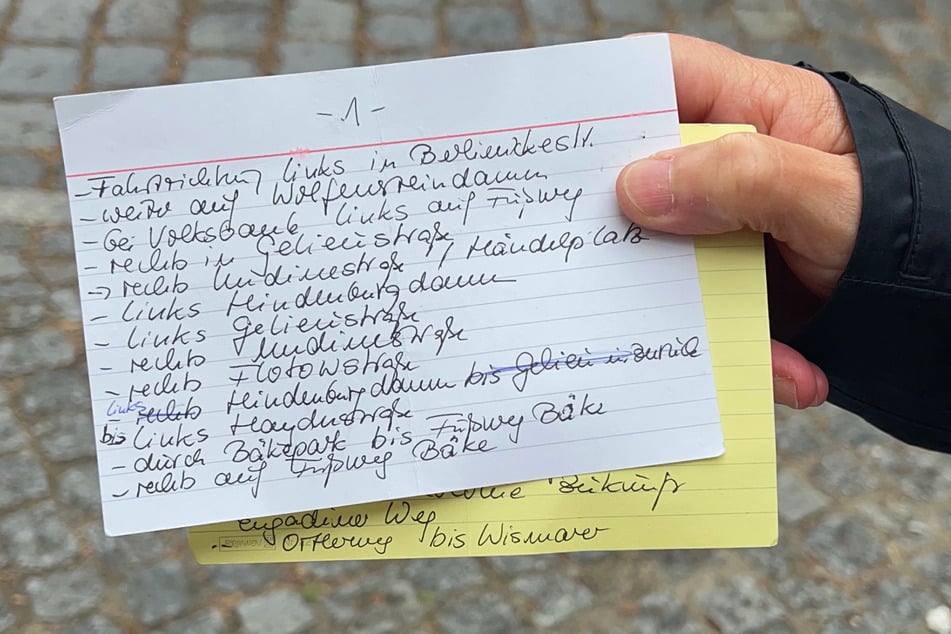 -1-
- Fahrtrichtung links in Berlinickestr.
- weiter auf Wolfensteindamm
- bei Volksbank links auf Fußweg
- rechts in Gelieustraße
-> rechts Undinestraße, Händelplatz
- links Hindenburgdamm
- links Gelieustraße
- rechts Undinestraße
- rechts Flotowstraße
links rechts Hindenburgdamm bis Gelieu in zurück
bis links Haydnstraße
- durch Bäkepark bis Fußweg Bäke
- rechts auf Fußweg Bäke
Zukunft
Engadiner Weg
- Ortlerweg bis Wismarer